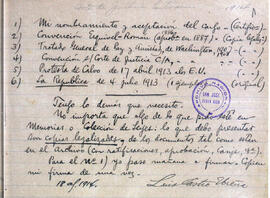 1) Mi nombramiento y aceptación del cargo (Certific.)
2) Convención Esquivel-Román (aprob. en 1887) (Copia legaliz.)
3) Tratado General de Paz y Amistad, de Washington, 1907
4) Convención s/ Corte de Justicia C/A,
5) Protesta de Calvo de 17 abril 1913 a los E.U.
6) La República de 4 julio 1913 (1 ejemplar) (original)
Tengo lo demás que necesito.
No importa que algo de lo que pido esté en
Memorias o Colección de Leyes: lo que debo presentar
son copias legalizadas de los documentos tal como están
en el Archivo (con ratificaciones, aprobación, Canje &).
Para el No 1) yo paso mañana a firmar. Copien
mi firma de una vez.
18 1916.
Luis Castro Ureña
SAN JOSE
COSTA RICA